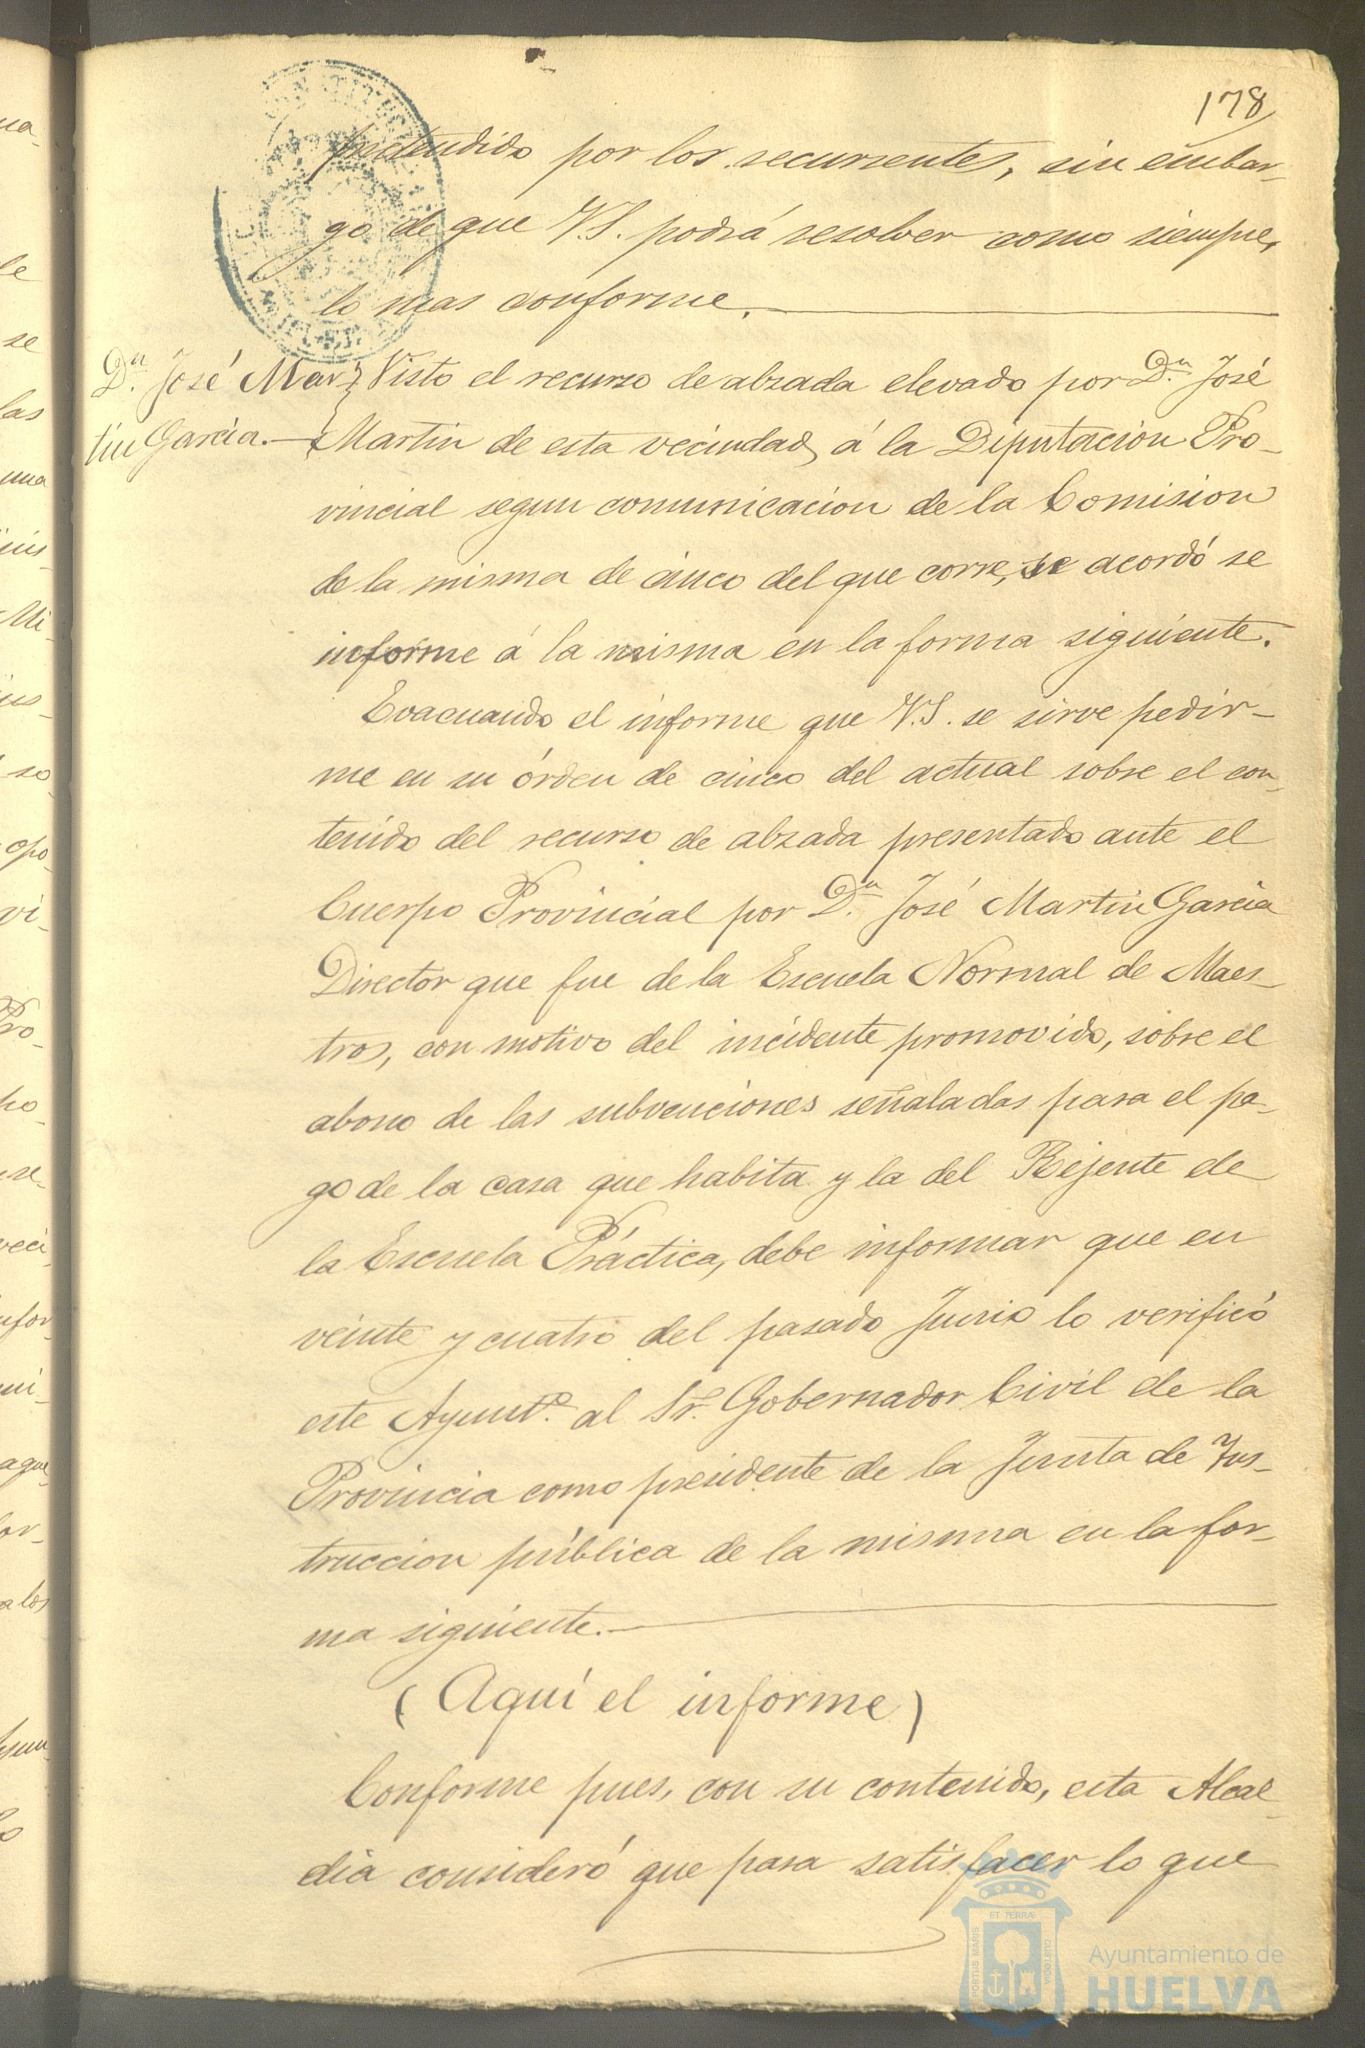 178
pretendido por los recurrentes, sin embar-
go de que V.S. podrá resolver como siempre,
lo mas conforme.
Dn. José Mar-
tin Garcia.
Visto el recurso de alzada elevado por Dn. José
Martin de esta vecindad, á la Diputacion Pro-
vincial segun comunicacion de la Comision
de la misma de cinco del que corre, se acordó se
informe á la misma en la forma siguiente.
Evacuando el informe que V.S. se sirve pedir-
me en su órden de cinco del actual sobre el con-
tenido del recurso de alzada presentado ante el
Cuerpo Provincial por Dn. José Martin Garcia
Director que fue de la Escuela Normal de Maes-
tros, con motivo del incidente promovido, sobre el
abono de las subvenciones señaladas para el pa-
go de la casa que habita y la del Rejente de
la Escuela Práctica, debe informar que en
veinte y cuatro del pasado Junio lo verificó
este Ayunto. al Sr. Gobernador Civil de la
Provincia como presidente de la Junta de Ins-
truccion pública de la misma en la for-
ma siguiente.
(Aquí el informe)
Conforme pues, con su contenido, esta Alcal-
dia consideró que para satisfacer lo que
PORTUS MARIS ET TERRÆ CUSTODIA
Ayuntamiento de
HUELVA